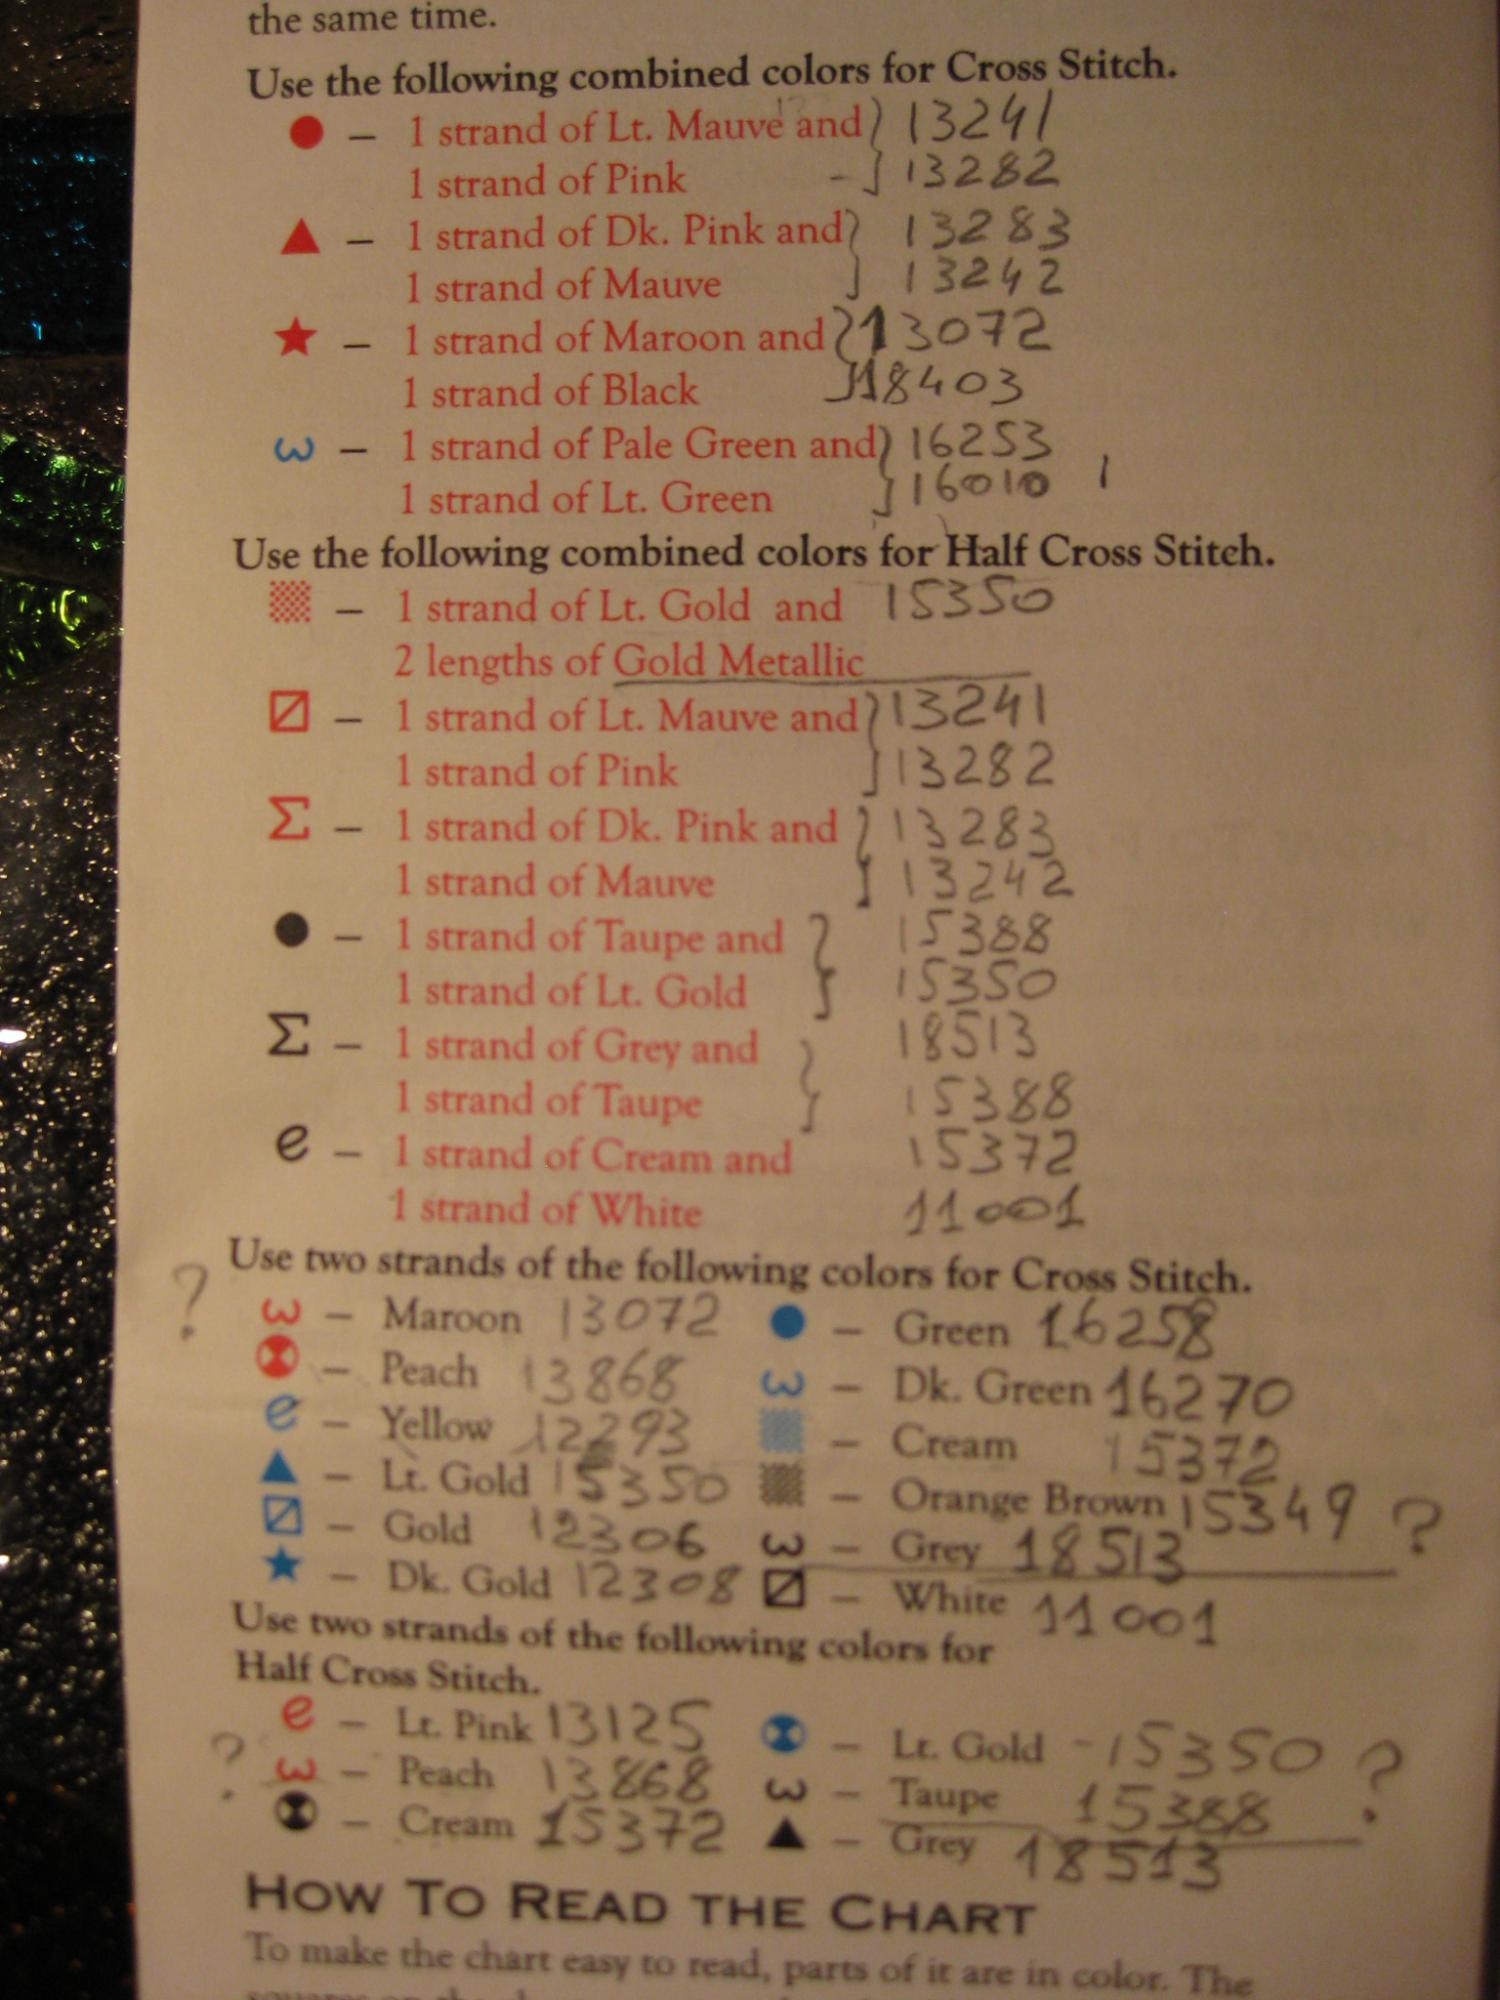 the same time.
Use the following combined colors for Cross Stitch.
● – 1 strand of Lt. Mauve and } 13241
1 strand of Pink - ] 13282
▲ – 1 strand of Dk. Pink and } 13283
1 strand of Mauve ] 13242
★ – 1 strand of Maroon and } 13072
1 strand of Black ] 18403
ω – 1 strand of Pale Green and } 16253
1 strand of Lt. Green ] 16010
Use the following combined colors for Half Cross Stitch.
– 1 strand of Lt. Gold and 15350
2 lengths of Gold Metallic
– 1 strand of Lt. Mauve and } 13241
1 strand of Pink ] 13282
Σ – 1 strand of Dk. Pink and } 13283
1 strand of Mauve ] 13242
● – 1 strand of Taupe and } 15388
1 strand of Lt. Gold } 15350
Σ – 1 strand of Grey and } 18513
1 strand of Taupe } 15388
e – 1 strand of Cream and 15372
1 strand of White 11001
Use two strands of the following colors for Cross Stitch.
? ω – Maroon 13072 ● – Green 16258
– Peach 13868 ω – Dk. Green 16270
e – Yellow 12293 – Cream 15372
▲ – Lt. Gold 15350 – Orange Brown 15349 ?
– Gold 12306 ω – Grey 18513
★ – Dk. Gold 12308 – White 11001
Use two strands of the following colors for
Half Cross Stitch.
e – Lt. Pink 13125 – Lt. Gold - 15350 ?
? ω – Peach 13868 ω – Taupe 15388
– Cream 15372 ▲ – Grey 18513
HOW TO READ THE CHART
To make the chart easy to read, parts of it are in color. The